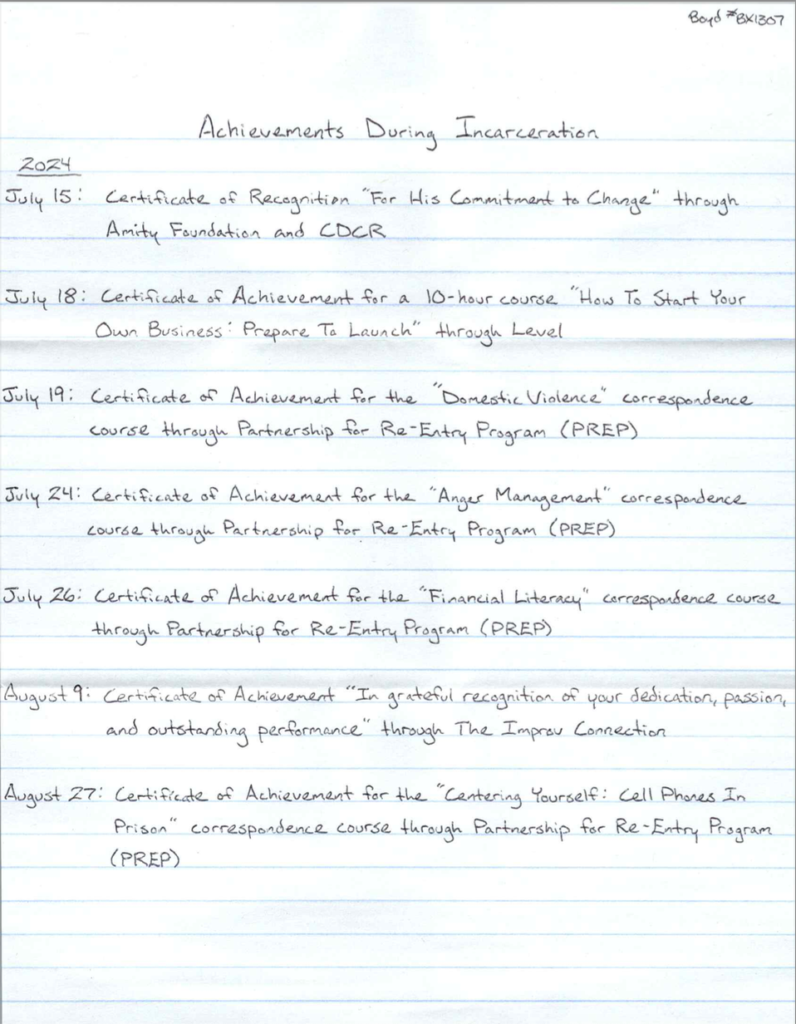 Boyd #BX1307
Achievements During Incarceration
2024
July 15: Certificate of Recognition "For His Commitment to Change" through
Amity Foundation and CDCR
July 18: Certificate of Achievement for a 10-hour course "How To Start Your
Own Business: Prepare To Launch" through Level
July 19: Certificate of Achievement for the "Domestic Violence" correspondence
course through Partnership for Re-Entry Program (PREP)
July 24: Certificate of Achievement for the "Anger Management" correspondence
course through Partnership for Re-Entry Program (PREP)
July 26: Certificate of Achievement for the "Financial Literacy" correspondence course
through Partnership for Re-Entry Program (PREP)
August 9: Certificate of Achievement "In grateful recognition of your dedication, passion,
and outstanding performance" through The Improv Connection
August 27: Certificate of Achievement for the "Centering Yourself: Cell Phones In
Prison" correspondence course through Partnership for Re-Entry Program
(PREP)